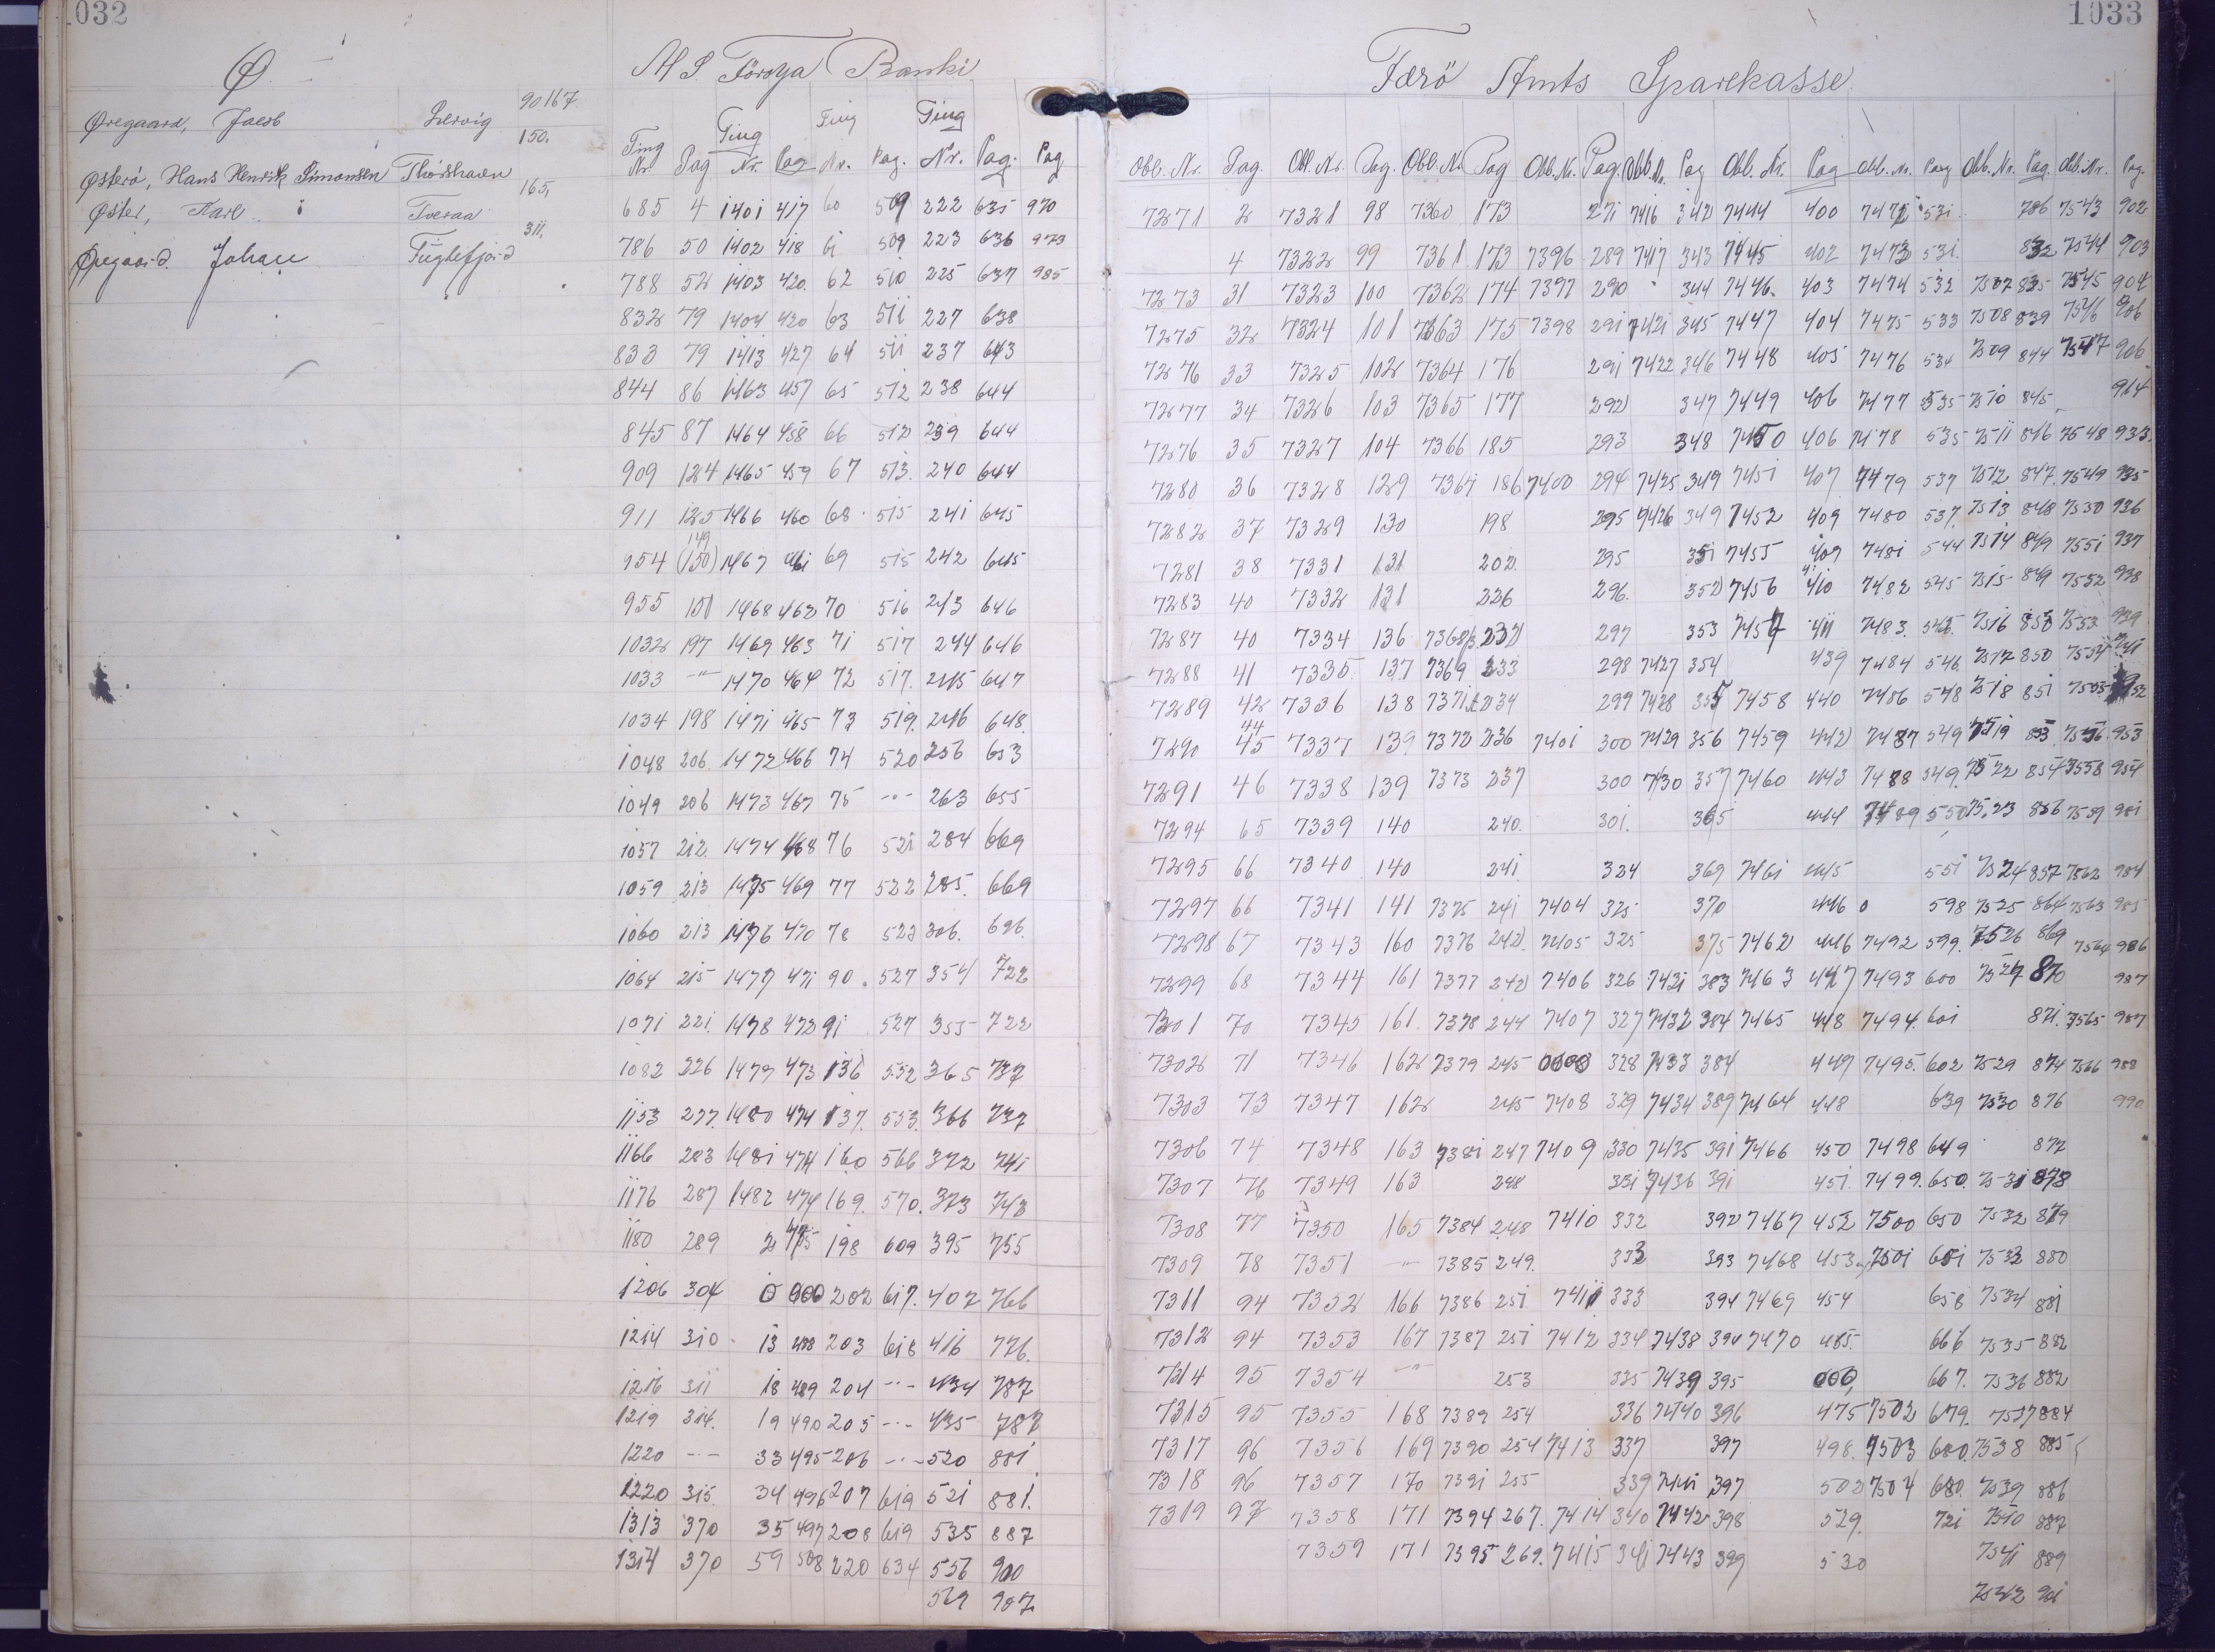 1032
1033
Ø.
A/S. Föroya Banki
Færö Amts Sparekasse.
90 167.
Øregaard, Jacob
Lervig
150.
Østerø, Hans Henrik Simonsen Thorshavn
165,
Øster, Karl
Tveraa
311,
Øregaard. Johan
Fuglefjord
Ting Nr. Pag Ting Nr. Pag Ting Nr. Pag. Ting Nr. Pag. Pag
685 4 1401 417 60 509 222 635 970
786 50 1402 418 61 509 223 636 973
788 52 1403 420. 62 510 225 637 985
832 79 1404 420 63 511 227 638
833 79 1413 427 64 511 237 643
844 86 1463 457 65 512 238 644
845 87 1464 458 66 512 239 644
909 124 1465 459 67 513. 240 644
911 125 1466 460 68 515 241 645
149
954 (150) 1467 461 69 515 242 645
955 151 1468 462 70 516 243 646
1032 197 1469 463 71 517 244 646
1033 -"- 1470 464 72 517. 245 647
1034 198 1471 465 73 519. 246 648.
1048 206. 1472 466 74 520 256 653
1049 206 1473 467 75 -"- 263 655
1057 212. 1474 468 76 521 284 669
1059 213 1475 469 77 522 285. 669
1060 213 1476 470 78 523 306. 696.
1064 215 1477 471 90. 527 354 722
1071 221. 1478 472 91 527 355 722
1082 226 1479 473 136 552 365 737
1153 277. 1480 474 137. 553. 366 737
1166 283 1481 474 160 566 372 741
1176 287 1482 474 169. 570. 373 743
1180 289 2 475 198 609 395 755
1206 304 0 000 202 617. 407 766
1214 310 13 488 203 618 416 776.
1216 311 18 489 204 -"- 434 787
1219 314. 19 490 205 -"- 435 787
1220 -"- 33 495 206 -"- 520 881
1220 315. 34 496 207 619 521 881.
1313 370 35 497 208 619 535 887
1314 370 59 508 220 634 556 900
569 907
Obl. Nr. Pag. Obl. Nr. Pag. Obl. Nr. Pag Obl. Nr. Pag. Obl. Nr. Pag Obl. Nr. Pag Obl. Nr. Pag Obl. Nr. Pag. Obl. Nr. Pag.
7271 2 7321 98 7360 173 271 7416 342 7444 400 7472 531. 786 7543 902
4 7322 99 7361 173 7396 289 7417 343 7445 402 7473 531. 832 7544 903
7273 31 7323 100 7362 174 7397 290 344 7446. 403 7474 532 7507 835 7545 904
7275 32 7324 101 7363 175 7398 291 7421 345 7447 404 7475 533 7508 839 7546 906
7276 33 7325 102 7364 176 291 7422 346 7448 405 7476 534 7509 844 7547 906
7277 34 7326 103 7365 177 292 347 7449 406 7477 535 7510 845 914
7276 35 7327 104 7366 185 293 348 7450 406 7478 535 7511 846 7548 933.
7280 36 7328 129 7367 186 7400 294 7425 349 7451 407 7479 537 7512 847. 7549 935
7282 37 7329 130 198 295 7426 349 7452 409 7480 537. 7513 848 7550 936
7281 38 7331 131 202. 295 351 7455 409 7481 544 7514 849 7551 937
7283 40 7332 131 226 296. 352 7456 410 7482 545 7515 849 7552 938
7287 40 7334 136 7368 232 297 353 7457 411 7483. 545. 7516 850 7553 939
7288 41 7335 137 7369 233 298 7427 354 439 7484 546 7517 850 7554 941
7289 42 7336 138 7371 234 299 7428 355 7458 440 7486 548 7518 851 7555 952
44
7290 45 7337 139 7372 236 7401 300 7429 356 7459 442 7487 549 7519 853. 7556. 953
7291 46 7338 139 7373 237 300 7430 357 7460 443 7488 549. 7522 854 7558 954
7294 65 7339 140 240. 301. 365 444 7489 550 7523 856 7559 981
7295 66 7340 140 241. 324 369 7461 445 551 7524 857 7562 984
7297 66 7341 141 7375 241 7404 325 370 446 0 598 7525 864 7563 985
7298 67 7343 160 7376 242. 7405 325 375 7462 446 7492 599. 7526 869 7564 986
7299 68 7344 161 7377 242 7406 326 7431 383 7463 447 7493 600 7527 870 987
7301 70 7345 161. 7378 244 7407 327 7432 384 7465 448 7494. 601 871. 7565 987
7302 71 7346 162 7379 245 0000 328 7433 384 449 7495. 602 7529 874 7566 988
7303 73 7347 162 245 7408 329 7434 389 7464 448 639 7530 876 990
7306 74 7348 163 7381 247 7409 330 7435 391 7466 450 7498 649 877
7307 76 7349 163 248 331 7436 391 451. 7499. 650. 7531 878
7308 77 7350 165 7384 248 7410 332 392 7467 452 7500 650 7532 879
7309 78 7351 -"- 7385 249. 333 393 7468 453 7501 651 7533 880
7311 94 7352 166 7386 251. 7411 333 394 7469 454 658 7534 881
7312 94 7353 167 7387 251 7412 334 7438 394 7470 455. 666 7535 882
7314 95 7354 -"- 253 335 7439 395 000, 667. 7536 882
7315 95 7355 168 7389 254 336 7440 396 475 7502 679. 7537 884
7317 96 7356 169 7390 254 7413 337 397 498. 7503 680. 7538 885
7318 96 7357 170 7391 255 339 7441 397 502 7504 680. 7539 886
7319 97 7358 171 7394 267. 7414 340 7442 398 529. 721 7540 887
7359 171 7395 269. 7415 341 7443 399 530 7541 889
7542 901